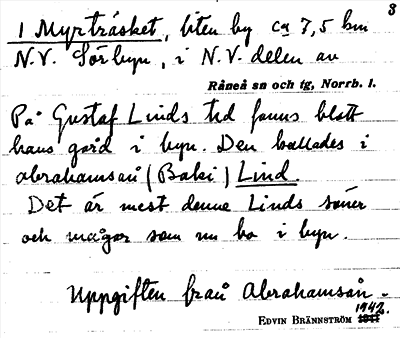 3
1 Myrträsket, liten by ca 7,5 km
N.V. Sörbyn, i N.V. delen av
Råneå sn och tg, Norrb. l.
På Gustaf Linds tid fanns blott
hans gård i byn. Den kallades i
Abrahamsån (Baki) Lind.
Det är mest denne Linds söner
och mågar som nu bo i byn.
Uppgiften från Abrahamsån.
1942.
EDVIN BRÄNNSTRÖM